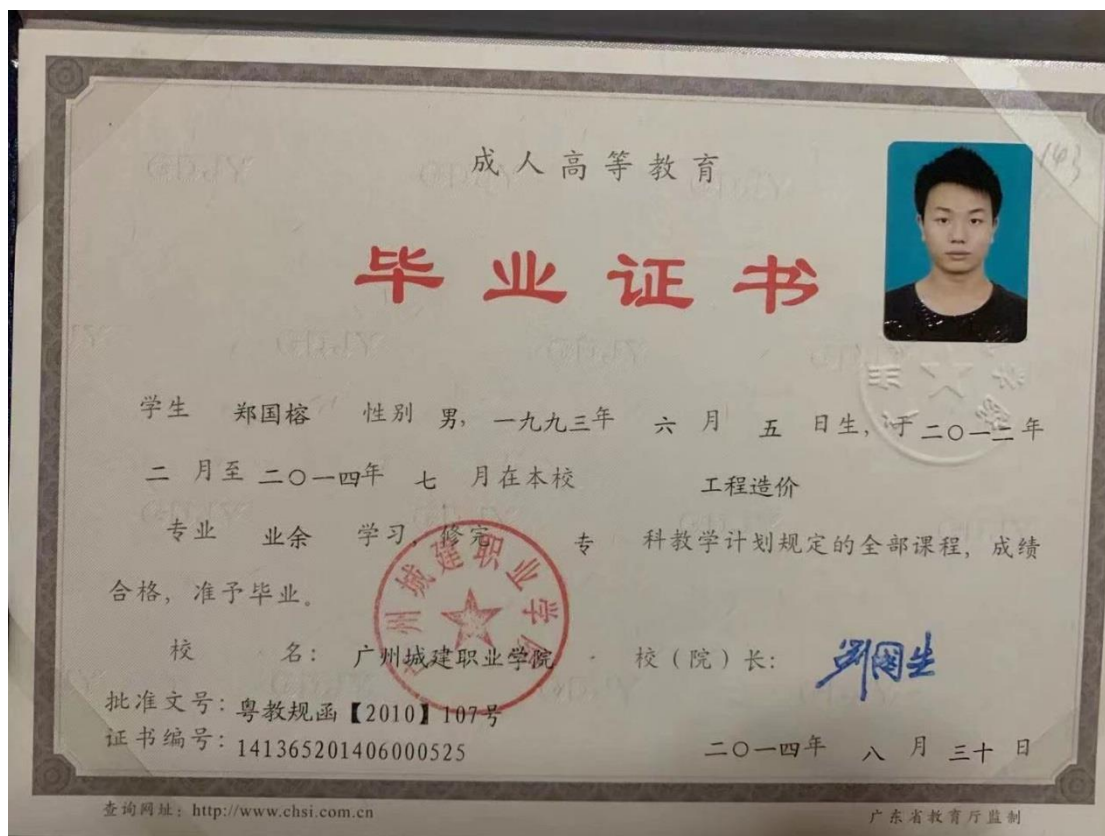 成人高等教育
143
毕业证书
学生 郑国榕 性别 男, 一九九三年 六 月 五 日生, 于 二〇一二年
二 月至 二〇一四年 七 月在本校 工程造价
专业 业余 学习, 修完 专 科教学计划规定的全部课程, 成绩
合格, 准予毕业。
广州城建职业学院
校 名: 广州城建职业学院 校(院)长: 刘国生
批准文号: 粤教规函【2010】107号
证书编号: 141365201406000525
二〇一四年 八 月 三十 日
查询网址: http://www.chsi.com.cn
广东省教育厅监制